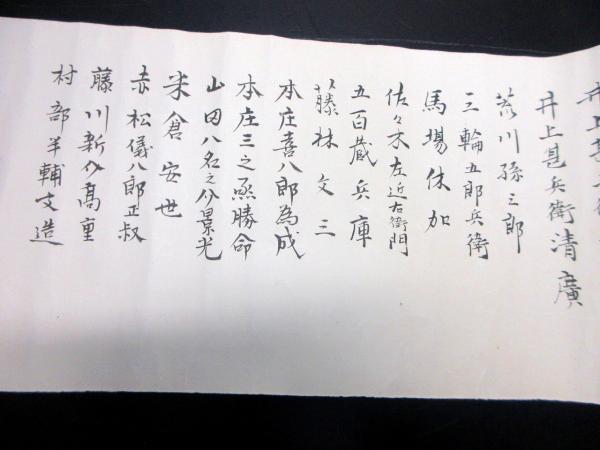 井上甚兵衛清廣
荒川孫三郎
三輪五郎兵衛
馬場休加
佐々木左近右衛門
五百蔵兵庫
藤林文三
本庄喜八郎為成
本庄三之丞勝命
山田八名之介景光
米倉安世
赤松儀八郎正叔
藤川新介高重
村部半輔文造